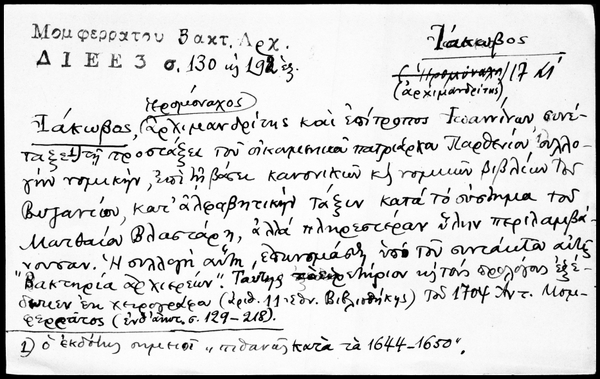 Μομφερράτου Βακτ. Ἀρχ.
ΔΙΕΕ 3 σ. 130 κἑ 192 ἑξ.
Ἰάκωβος
(Ἱερομόναχ) 17 αἰ
(ἀρχιμανδρίτης)
Ἱερομόναχος
Ἰάκωβος, ἀρχιμανδρίτης καὶ ἐπίτροπος Ἰωαννίνων συνέ-
ταξε 1) τῇ προστάξει τοῦ οἰκουμενικοῦ πατριάρχου Παρθενίου συλλο-
γὴν νομικήν, ἐπὶ τῇ βάσει κανονικῶν κ̀ νομικῶν βιβλίων τοῦ
Βυζαντίου, κατ' ἀλφαβητικὴν τάξιν κατὰ τὸ σύστημα τοῦ
Ματθαίου Βλαστάρη, ἀλλὰ πληρεστέραν ὕλην περιλαμβά-
νουσαν. Ἡ συλλογὴ αὕτη, ἐπωνομάσθη ὑπὸ τοῦ συντάκτου αὐτῆς
"Βακτηρία ἀρχιερέων". Ταύτης τὸ εὑρετήριον κ̀ τοὺς προλόγους ἐξέ-
δωκεν ἐκ χειρογράφου (ἀριθ. 11 Ἐθν. Βιβλιοθήκης) τοῦ 1704 Ἀντ. Μομ-
φερράτος (ἔνθ' ἀνωτ. σ. 129-218).
1) ὁ ἐκδότης σημειοῖ „πιθανῶς κατὰ τὰ 1644-1650".